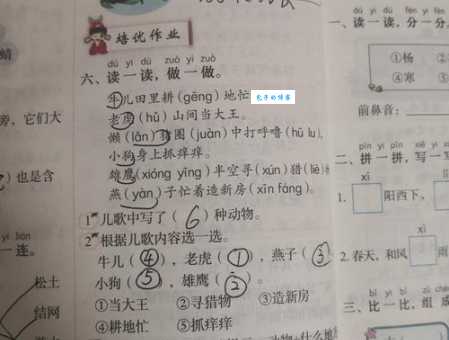 培优作业
dú yì dú zuò yi zuò
六、读一读，做一做。
牛儿田里耕(gēng)地忙
老虎(hǔ)山间当大王。
懒(lǎn)猪圈(juàn)中打呼噜(hū lu),
小狗身上抓痒痒。
雄鹰(xióng yīng)半空寻(xún)猎(liè)
燕(yàn)子忙着造新房(xīn fáng)。
1 儿歌中写了(6)种动物。
2 根据儿歌内容选一选。
牛儿(④)，老虎(①)，燕子(③
小狗(⑤)，雄鹰(②)。
①当大王 ②寻猎物 ③造新房
④耕地忙 ⑤抓痒痒
蜻
旁，它们大
也是含
yi lián
一连。
松土
结网
dú yì dú fēn yi fēn
一、读一读，分一分
①杨
④寒
前鼻音：
pīn yi pīn xiě yi
二、拼一拼，写一写
xī
1. 阳西下，
xì
2. 春天，和风 雨
bǐ yi bǐ zǔ
三、比一比，组成